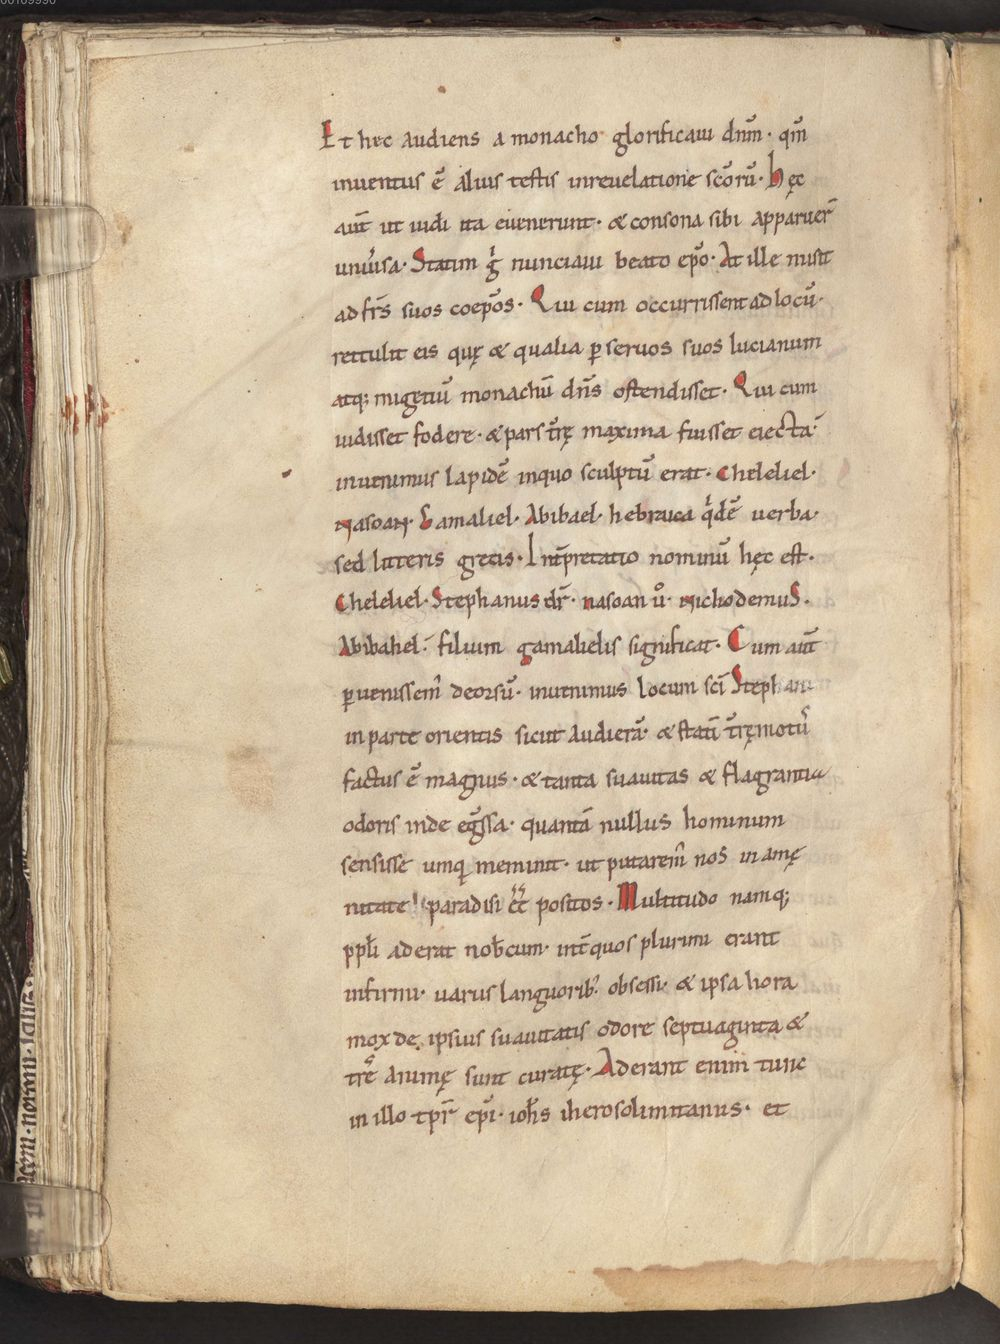 Et hec audiens a monacho glorificaui dnm̄· qm̄
inuentus ē alius testis inreuelatione sc̄orū· hęc
aut̄ ut uidi ita euenerunt· & consona sibi apparuer̄
uniu͛sa· Statim g̊ nunciaui beato ep̄o· At ille misit
ad fr̄s suos coep̄os· Qui cum occurrissent ad locū·
rettulit eis quę & qualia ꝑ seruos suos lucianum
atq; migetiū monachū dn̄s ostendisset· Qui cum
uidisset fodere· & pars t͛rę maxima fuisset eiecta·
inuenimus lapidē inquo sculptū erat· Cheleliel·
Nasoan· Gamaliel· Abibael· hebraica qͥdē uerba·
sed litteris grecis· Int͛pretatio nominū hęc est·
Cheleliel· Stephanus dr̄· nasoan ů· nichodemuS·
Abibahel· filium gamalielis significat· Cum aut̄
ꝑuenissem᷒ deorsū· inuenimus locum sc̄i Stephani
in parte orientis sicut audierā· & statī t͛rę motu᷒
factus ē magnus· & tanta suauitas & flagrantia
odoris inde eg͛ssa· quantā nullus hominum
sensisse umqͣ meminit· ut putarem᷒ nos in amę
nitate paradisi ee͛t positos· Multitudo namq;
ppl̄i aderat nob̄cum· int͛ quos plurimi erant
infirmi· uariis languorib᷒· obsessi· & ipsa hora
mox de ipsius suauitatis odore septuaginta &
tre͛ animę sunt curatę· Aderant enim tunc
in illo tp̄r ep̄i· ioh̄s iherosolimitanus· et